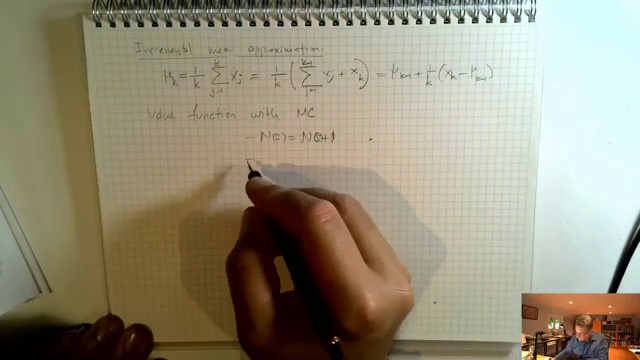 Incremental mean approximation:
μ_k = 1/k ∑_{j=1}^{k} x_j = 1/k ( ∑_{j=1}^{k-1} x_j + x_k ) = μ_{k-1} + 1/k (x_k - μ_{k-1})
Value function with MC
- N(s) = N(s)+1